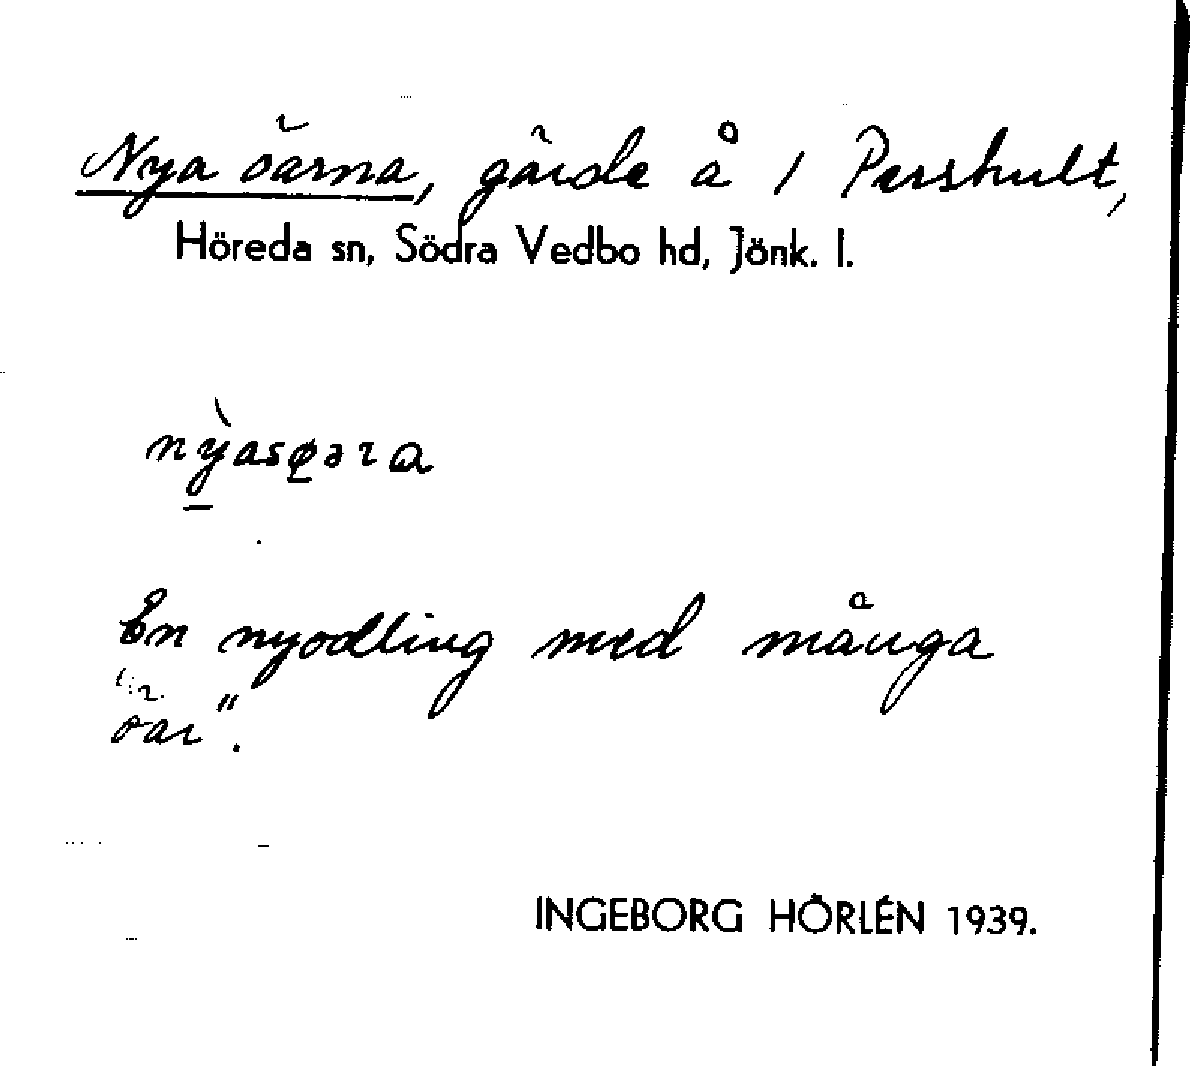 Nya öarna, gärde å 1 Pershult,
Höreda sn, Södra Vedbo hd, Jönk. l.
En nyodling med många
öar".
INGEBORG HÖRLÉN 1939.